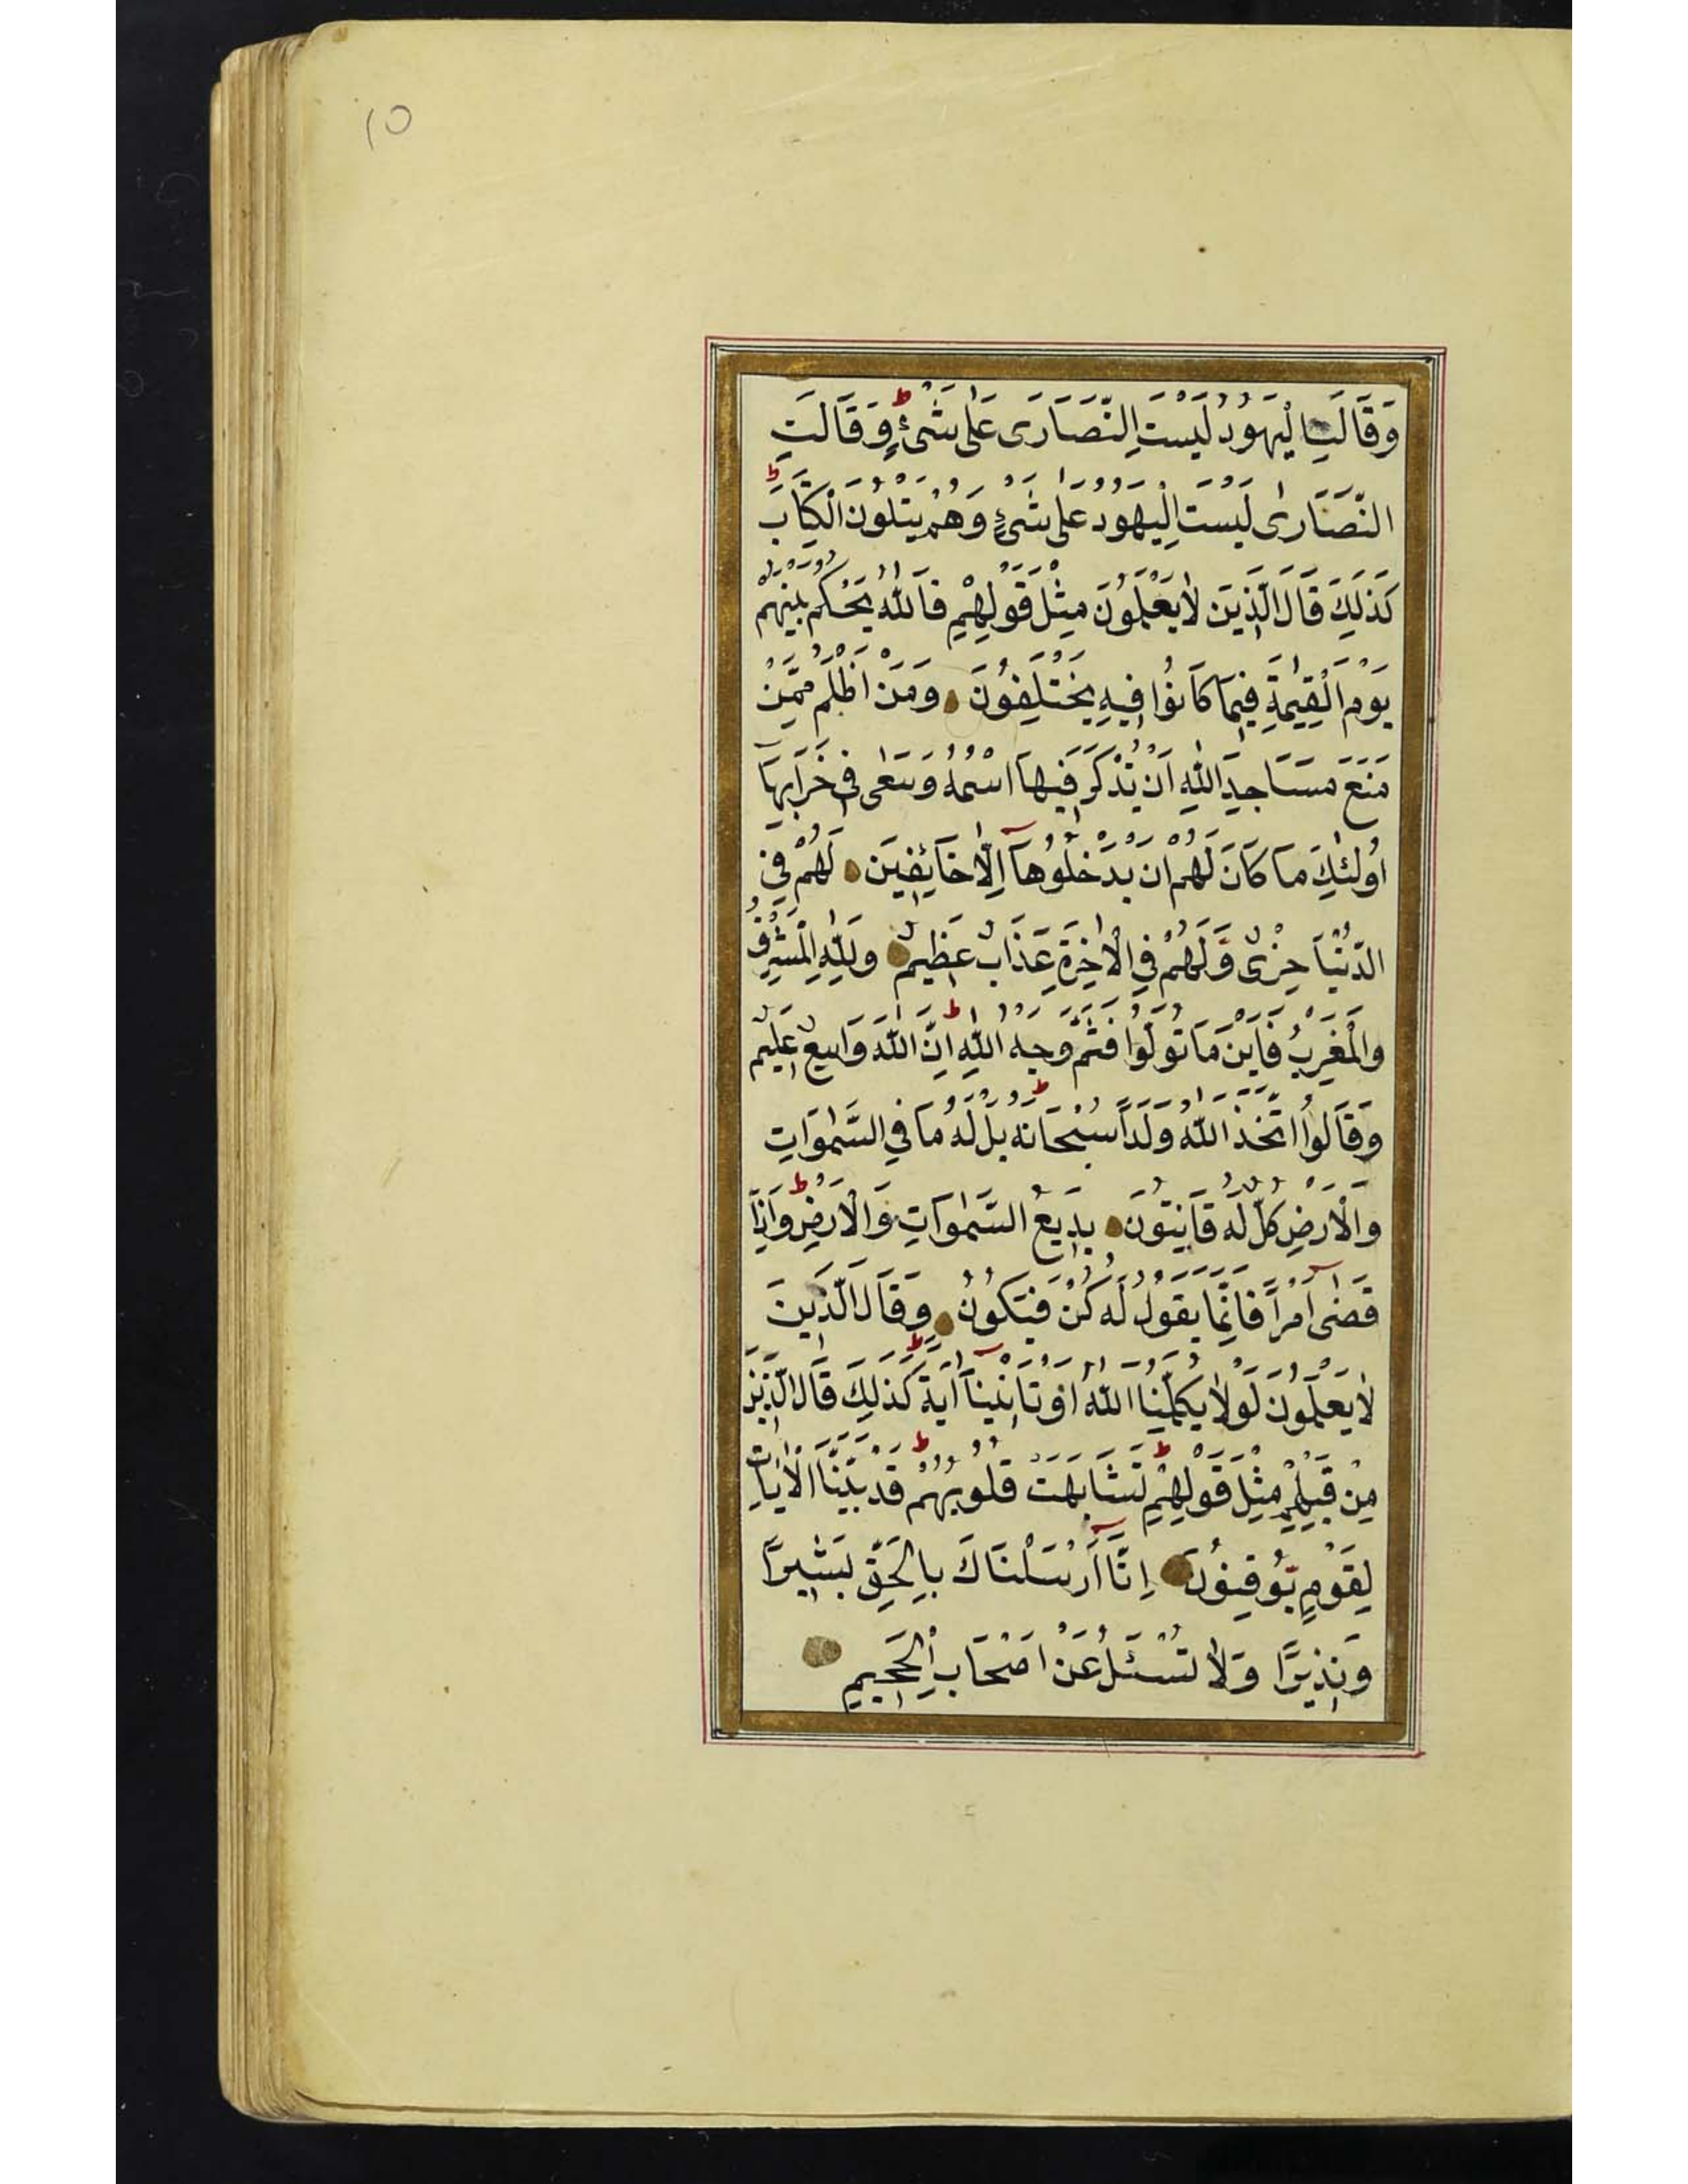 10
وَقَالَتِ الْيَهُودُ لَيْسَتِ النَّصَارَى عَلٰى شَىْءٍ وَقَالَتِ
النَّصَارٰى لَيْسَتِ الْيَهُودُ عَلٰى شَىْءٍ وَهُمْ يَتْلُونَ الْكِتَابَ
كَذٰلِكَ قَالَ الَّذِينَ لَا يَعْلَمُونَ مِثْلَ قَوْلِهِمْ فَاللّٰهُ يَحْكُمُ بَيْنَهُمْ
يَوْمَ الْقِيٰمَةِ فِيمَا كَانُوا فِيهِ يَخْتَلِفُونَ وَمَنْ اَظْلَمُ مِمَّنْ
مَنَعَ مَسَاجِدَ اللّٰهِ اَنْ يُذْكَرَ فِيهَا اسْمُهُ وَسَعٰى فِى خَرَابِهَا
اُولٰئِكَ مَا كَانَ لَهُمْ اَنْ يَدْخُلُوهَآ اِلَّا خَائِفِينَ لَهُمْ فِى
الدُّنْيَا خِزْىٌ وَلَهُمْ فِى الْاٰخِرَةِ عَذَابٌ عَظِيمٌ وَلِلّٰهِ الْمَشْرِقُ
وَالْمَغْرِبُ فَاَيْنَمَا تُوَلُّوا فَثَمَّ وَجْهُ اللّٰهِ اِنَّ اللّٰهَ وَاسِعٌ عَلِيمٌ
وَقَالُوا اتَّخَذَ اللّٰهُ وَلَدًا سُبْحَانَهُ بَلْ لَهُ مَا فِى السَّمٰوَاتِ
وَالْاَرْضِ كُلٌّ لَهُ قَانِتُونَ بَدِيعُ السَّمٰوَاتِ وَالْاَرْضِ وَاِذَا
قَضٰىٓ اَمْرًا فَاِنَّمَا يَقُولُ لَهُ كُنْ فَيَكُونُ وَقَالَ الَّذِينَ
لَا يَعْلَمُونَ لَوْلَا يُكَلِّمُنَا اللّٰهُ اَوْ تَأْتِينَآ اٰيَةٌ كَذٰلِكَ قَالَ الَّذِينَ
مِنْ قَبْلِهِمْ مِثْلَ قَوْلِهِمْ تَشَابَهَتْ قُلُوبُهُمْ قَدْ بَيَّنَّا الْاٰيَاتِ
لِقَوْمٍ يُوقِنُونَ اِنَّآ اَرْسَلْنَاكَ بِالْحَقِّ بَشِيرًا
وَنَذِيرًا وَلَا تُسْئَلُ عَنْ اَصْحَابِ الْجَحِيمِ